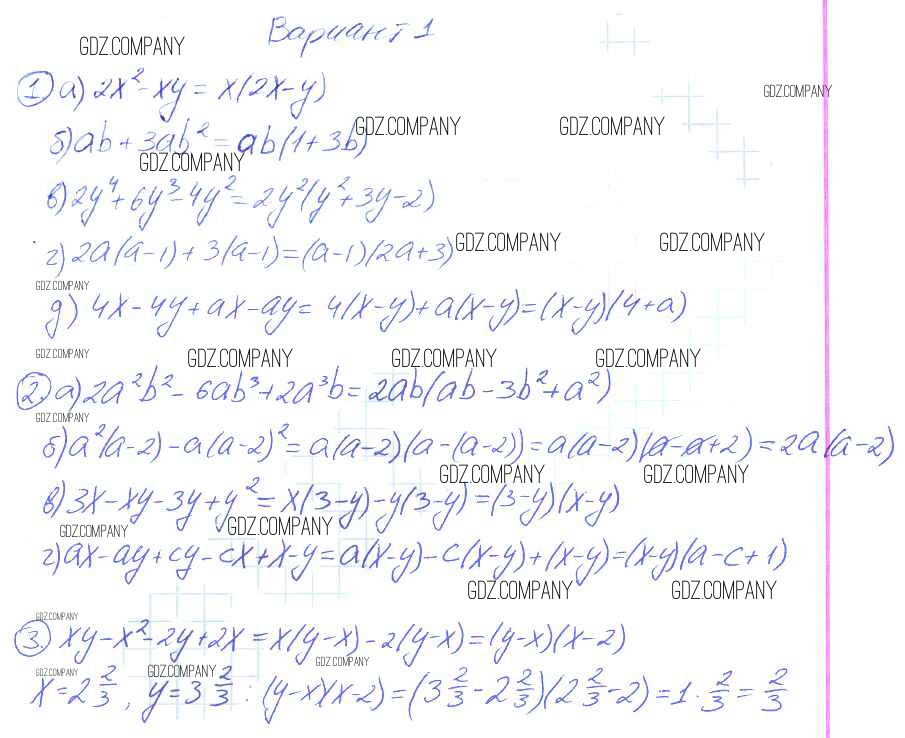 Вариант 1
GDZ.COMPANY
1 а) 2x² - xy = x(2x-y)
GDZ.COMPANY
б) ab + 3ab² = ab(1+3b)
GDZ.COMPANY GDZ.COMPANY
GDZ.COMPANY
в) 2y⁴ + 6y³ - 4y² = 2y²(y² + 3y - 2)
г) 2a(a-1) + 3(a-1) = (a-1)(2a+3)
GDZ.COMPANY GDZ.COMPANY
GDZ.COMPANY
д) 4x - 4y + ax - ay = 4(x-y) + a(x-y) = (x-y)(4+a)
GDZ.COMPANY GDZ.COMPANY GDZ.COMPANY GDZ.COMPANY
2. а) 2a²b² - 6ab³ + 2a³b = 2ab(ab - 3b² + a²)
GDZ.COMPANY
б) a²(a-2) - a(a-2)² = a(a-2)(a-(a-2)) = a(a-2)(a-a+2) = 2a(a-2)
GDZ.COMPANY GDZ.COMPANY
в) 3x - xy - 3y + y² = x(3-y) - y(3-y) = (3-y)(x-y)
GDZ.COMPANY GDZ.COMPANY
г) ax - ay + cy - cx + x - y = a(x-y) - c(x-y) + (x-y) = (x-y)(a-c+1)
GDZ.COMPANY GDZ.COMPANY
GDZ.COMPANY
3. xy - x² - 2y + 2x = x(y-x) - 2(y-x) = (y-x)(x-2)
GDZ.COMPANY GDZ.COMPANY GDZ.COMPANY
x = 2 2/3, y = 3 2/3 : (y-x)(x-2) = (3 2/3 - 2 2/3)(2 2/3 - 2) = 1 · 2/3 = 2/3